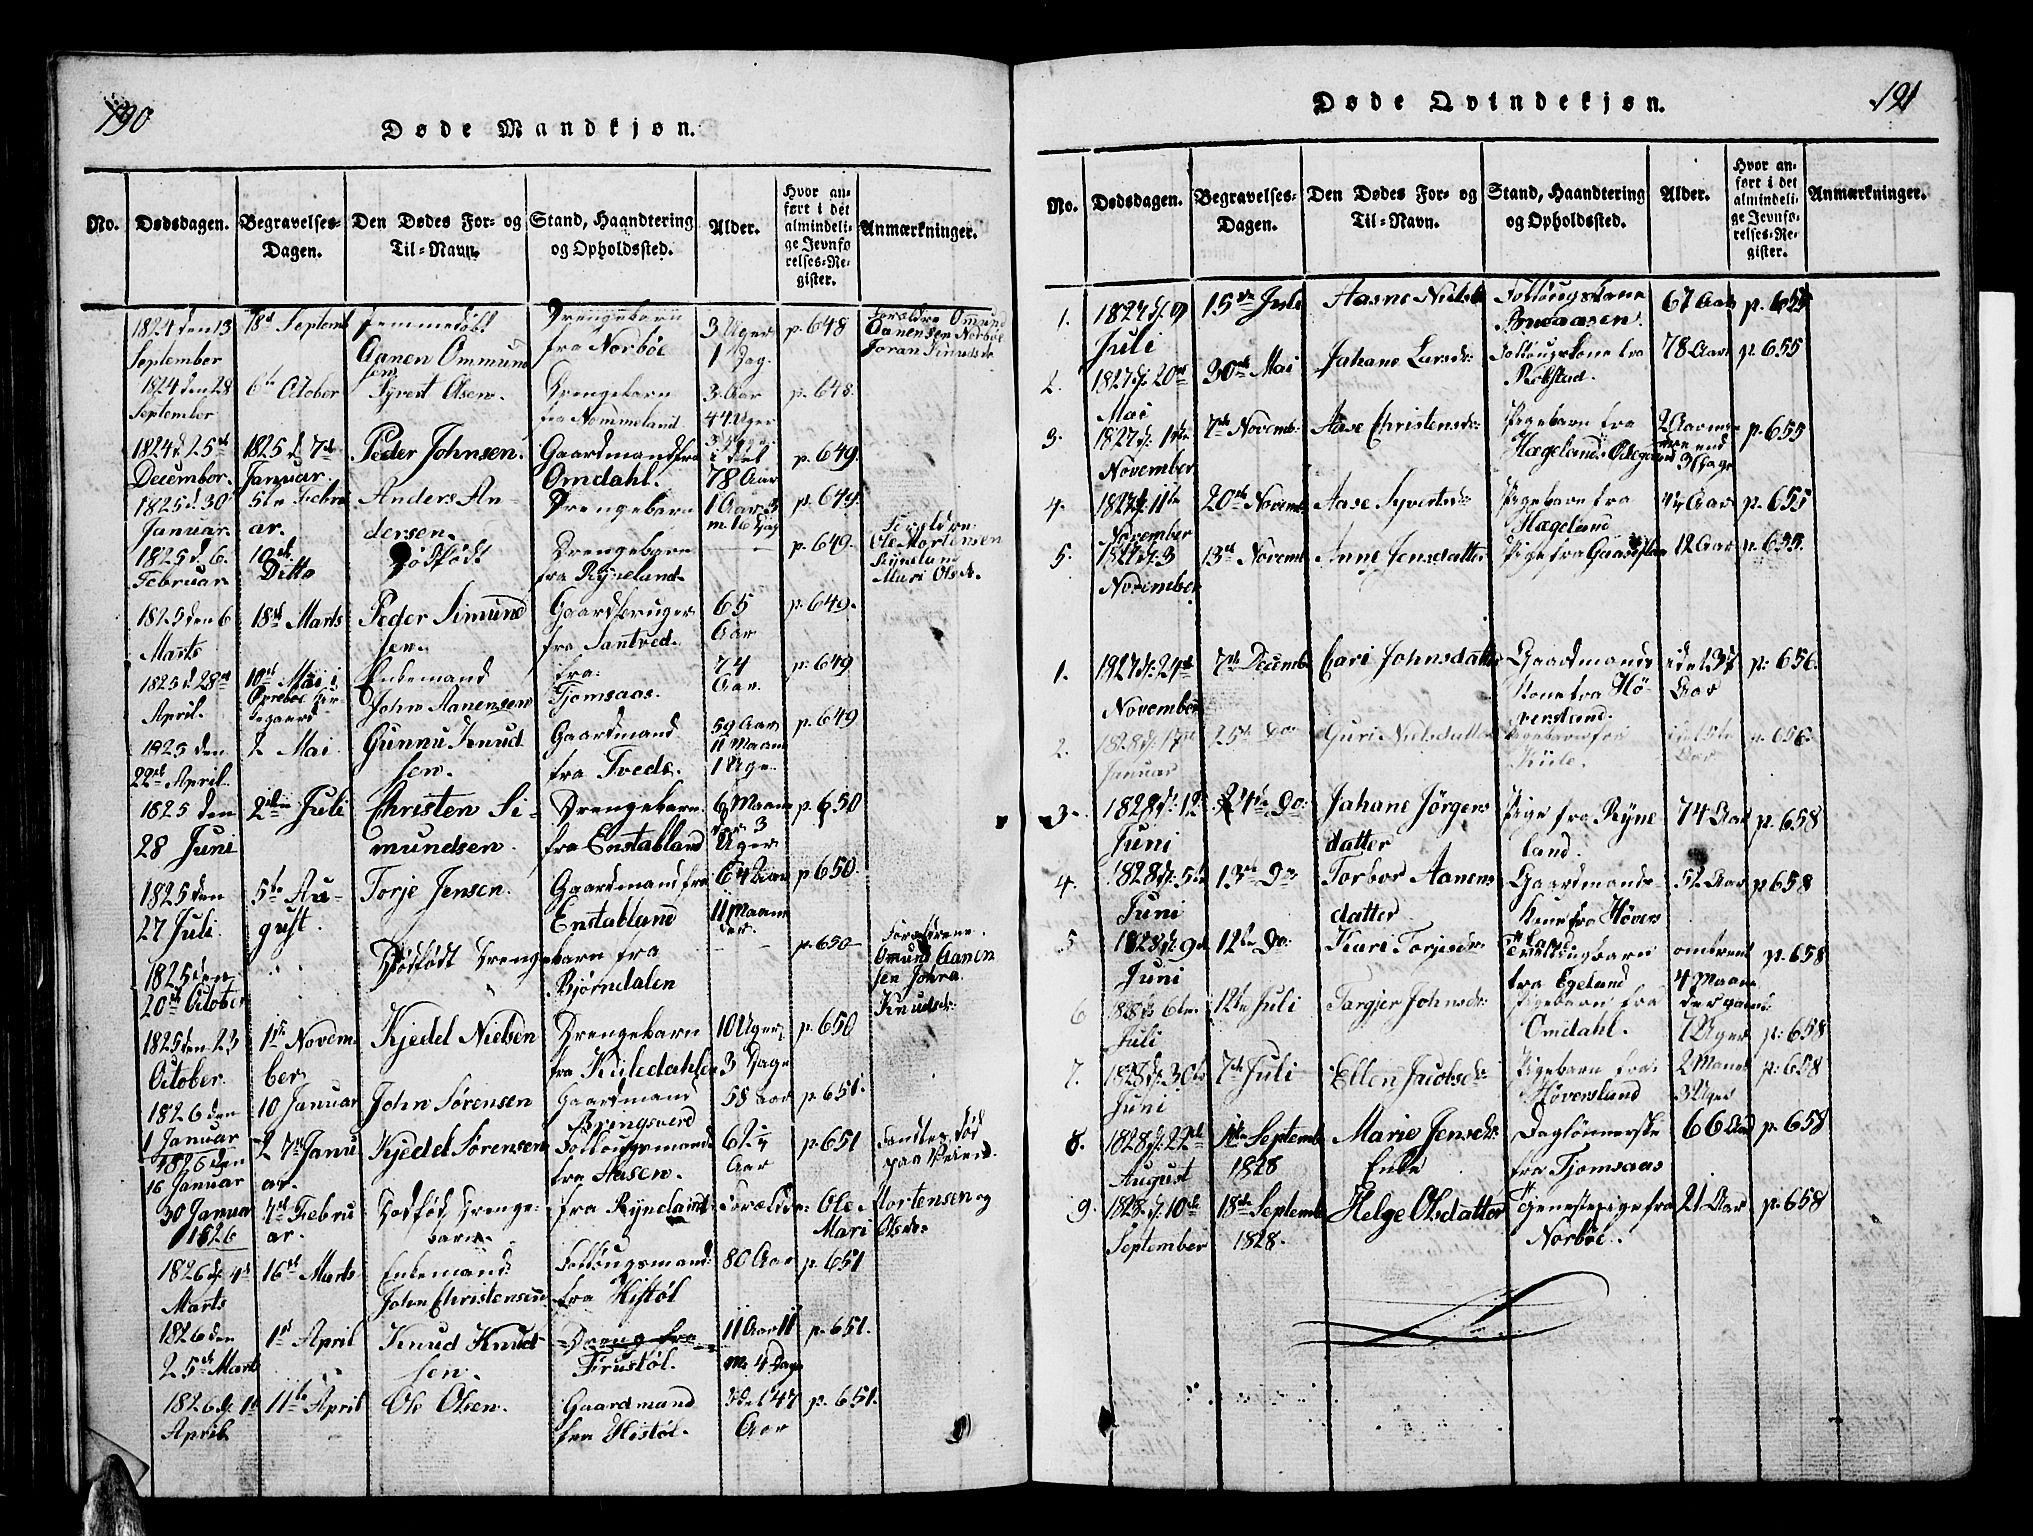 190
Døde Mandkjøn.
No. Dødsdagen. Begravelses-Dagen. Den Dødes For- og Til-Navn. Stand, Haandtering og Opholdssted. Alder. Hvor anført i det almindelige Jevnførelses-Register. Anmærkninger.
1824 den 13 September 18d Septemb Hjemmedøbt Aanen Ommundsen Drengebarn fra Norbøe 3 Uger 1 Dag. p. 648 Forældre Ommund Aanensen Norbøe
1824 den 28 September 6te October Syvert Olsen. Drengebarn fra Nommeland 3 Aar 44 Uger 3 Dage p. 648.
1824 d. 25de December. 1825 d. 7de Januar. Peder Johnsen. Gaardmand fra Omdahl. i det 78 Aar p. 649.
1825 d. 30 Januar. 5te Februar. Anders Andersen. Drengebarn 1 Aar 3 m. 16 Dag p. 649.
1825 d. 6. Februar 10de Ditto Dødfødt Drengebarn fra Rÿneland. — p. 649. Forældre Ole Mortensen Rÿnsland Mari Olsdr.
1825 den 6 Marts 18de Marts Peder Simundsen. Gaardbruger fra Santved. 65 Aar p. 649.
1825 d. 28de April. 10de Mai i Øvrebøe Kirkegaard Enkemand John Aanensen fra Tjomsaas. 74 Aar. p. 649
1825 den 22de April. 2 Mai Gunnu Knudsen. Gaardmand fra Tveds. 59 Aar 11 Maan 1 Uge. p. 649
1825 den 28 Juni 2den Juli Christen Simundsen. Drengebarn fra Enstabland 6 Maander 3 Uger p. 650
1825 den 27 Juli. 5te August. Torje Jensen. Gaardmand fra Enstabland 64 Aar 11 Maander. p. 650.
1825 den 20de October Dødfødt Drengebarn fra Bjørndalen — p. 650 Forældrene. Omund Aanensen Johra Knudsdr.
1825 den 23 October. 1ste November Kjedel Nielsen Drengebarn fra Kuledahlen 10 Uger 3 Dage p. 650
1826 den 1 Januar 10 Januar John Sørensen Gaardmand Bringsverd 58 Aar p. 651.
1826 den 16 Januar 27de Januar. Kjedel Sørensen Follougsmand fra Aasen. 62 Aar p. 651 Fandtes død paa Veien.
30 Januar 1826 4de Februar. Dødfød Drengebarn fra Rÿneland Forældre: Ole Mortensen og Mari Olsdr.
1826 d. 4de Marts 16de Marts Enkemand John Christensen Follougsmand fra Histøl 80 Aar p. 651
1826 den 25de Marts 1ste April Knud Knudsen. Dreng fra Frustøl. 11 Aar 11 M. 4 Dage p. 651.
1826 d. 1st April 11te April Ole Olsen. Gaardmand fra Histøl. i det 47 Aar p. 651.
191
Døde Qvindekjøn.
No. Dødsdagen. Begravelses-Dagen. Den Dødes For- og Til-Navn. Stand, Haandtering og Opholdssted. Alder. Hvor anført i det almindelige Jevnførelses-Register. Anmærkninger.
1. 1827 d. 9 Juli 15de Juli Aasne Nielsdr Follougskone 67 Aar p. 655
2. 1827 d. 20de Mai 30de Mai Jahane Larsdr: Follougskone fra Rokstad. 78 Aar p. 655
3. 1827 d. 1ste November 7de Novemb: Aase Christensdr: Pigebarn fra Hægeland 2 Aar p. 655
4. 1827 d. 11te November 20de Novemb Aase Syvertsdr: Pigebarn fra Hægeland 4 Aar p. 655
5. 1827 d. 3 November 13de Novemb Anne Jensdatter Pige fra 12 Aar p. 655.
1. 1827 d. 24de November 7de Decemb Cari Johnsdatter Gaardmands Kone fra Høversland. i det 37 Aar p. 656.
2. 1828 d. 17de Januar 25de Do Guri Nielsdatter Pigebarn fra Kule. Aar p. 656.
3. 1828 d. 12 Juni 24de Do: Jahane Jørgensdatter Pige fra Rÿneland. 74 Aar p. 658
4. 1828 d. 5te Juni 13de Do Torbor Aanensdatter Gaardmands Kone fra Høversland 52 Aar p. 658
5 1828 d. 9de Juni 12te Do: Kari Torjesdr: Tvillingbarn fra Egeland omtrent 4 Maander gammel p. 658
6 1828 d. 6te Juli 12te Juli Targjer Johnsdr: Pigebarn fra Omdahl. 7 Uger p. 658
7. 1828 d. 30te Juni 7de Juli Ellen Jacobsdr: Pigebarn fra Høversland 2 Maan 3 Uger p. 658
8. 1828 d. 22de August 1ste Septemb 1828 Marie Jensdr: Enke Daglønnerske fra Tjomsaas 66 Aar p. 658
9. 1828 d. 10de September 18de Septemb 1828. Helge Olsdatter Tjenestepige fra Norbøe. 21 Aar p. 658